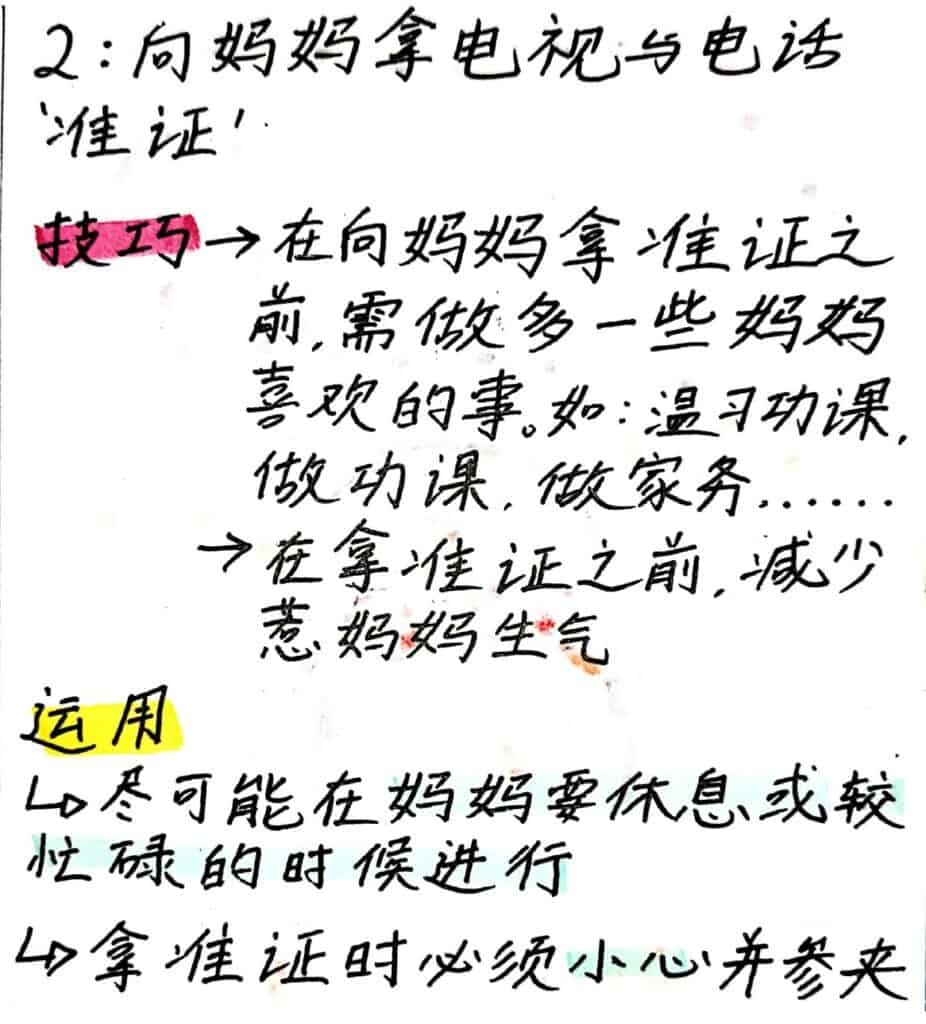 2:向妈妈拿电视与电话
'准证'
技巧→在向妈妈拿准证之
前,需做多一些妈妈
喜欢的事。如:温习功课,
做功课,做家务......
→在拿准证之前,减少
惹妈妈生气
运用
↳尽可能在妈妈要休息或较
忙碌的时候进行
↳拿准证时必须小心并参夹